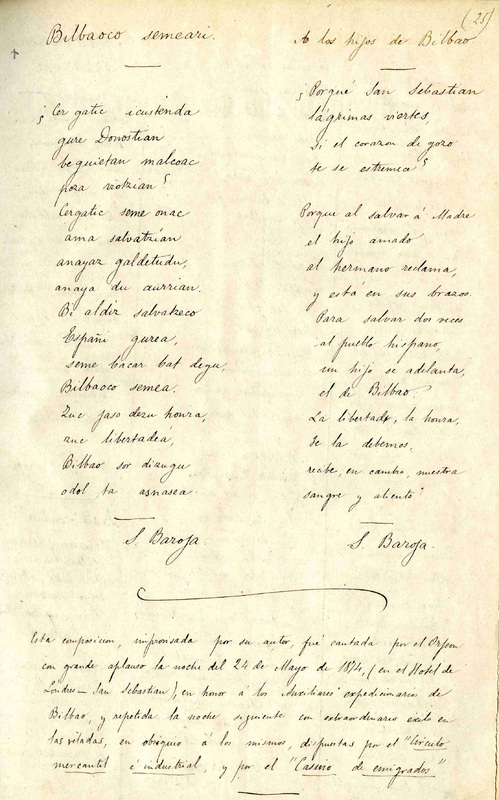 (25)
Bilbaoco semeari.
¿Cer gatic icustenda
gure Donostian
beguietan malcoac
poza viotzian?
Cergatic seme onac
ama salvatzian
anayaz galdetudu,
anaya du aurrian.
Bi aldiz salvatzeco
Españi gurea,
seme bacar bat degu,
Bilbaoco semea.
Zuc jaso dezu honra,
zuc libertadea,
Bilbao sor dizugu
odol ta asnasea.
S. Baroja.
A los hijos de Bilbao
¿Porqué San Sebastian
lágrimas viertes,
si el corazon de gozo
te se estremece?
Porque al salvar á Madre
el hijo amado
al hermano reclama,
y está en sus brazos.
Para salvar dos veces
al pueblo hispano,
un hijo se adelanta,
el de Bilbao.
La libertad, la honra,
te la debemos,
recibe, en cambio, nuestra
sangre y aliento."
S. Baroja.
Esta composicion, improvisada por su autor, fué cantada por el Orfeon
con grande aplauso la noche del 24 de Mayo de 1874, (en el Hotel de
Londres - San Sebastian), en honor á los Auxiliares expedicionarios de
Bilbao, y repetida la noche siguiente con extraordinario éxito en
las veladas, en obsequio á los mismos, dispuestas por el "Circulo
mercantil é industrial, y por el "Casino de emigrados"